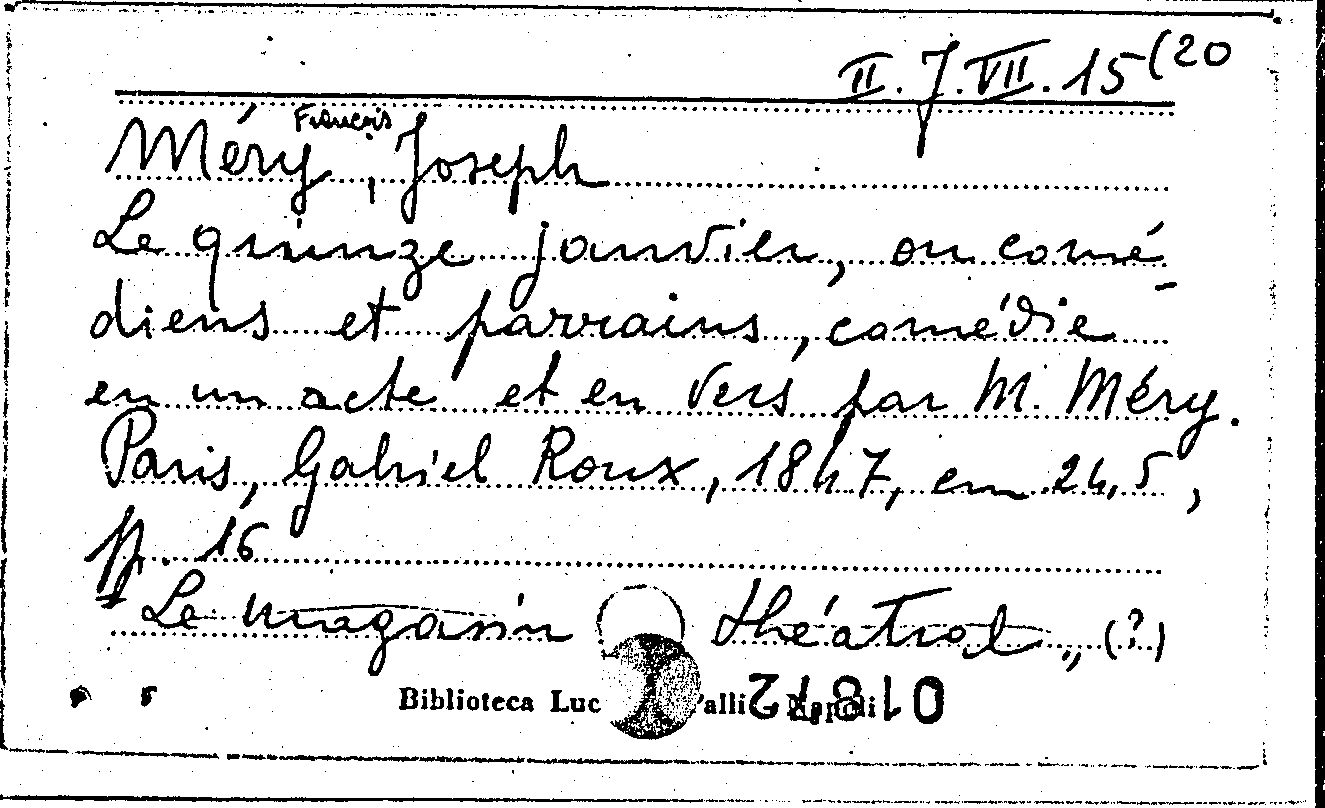 II. J. VII. 15 (20
Méry, François Joseph
Le quinze janvier, ou comé-
diens et parrains, comédie
en un acte et en vers par M. Méry.
Paris, Gabriel Roux, 1847, cm 24,5,
pp. 16
Le magasin théatral „ (?)
Biblioteca Luc alli Napoli